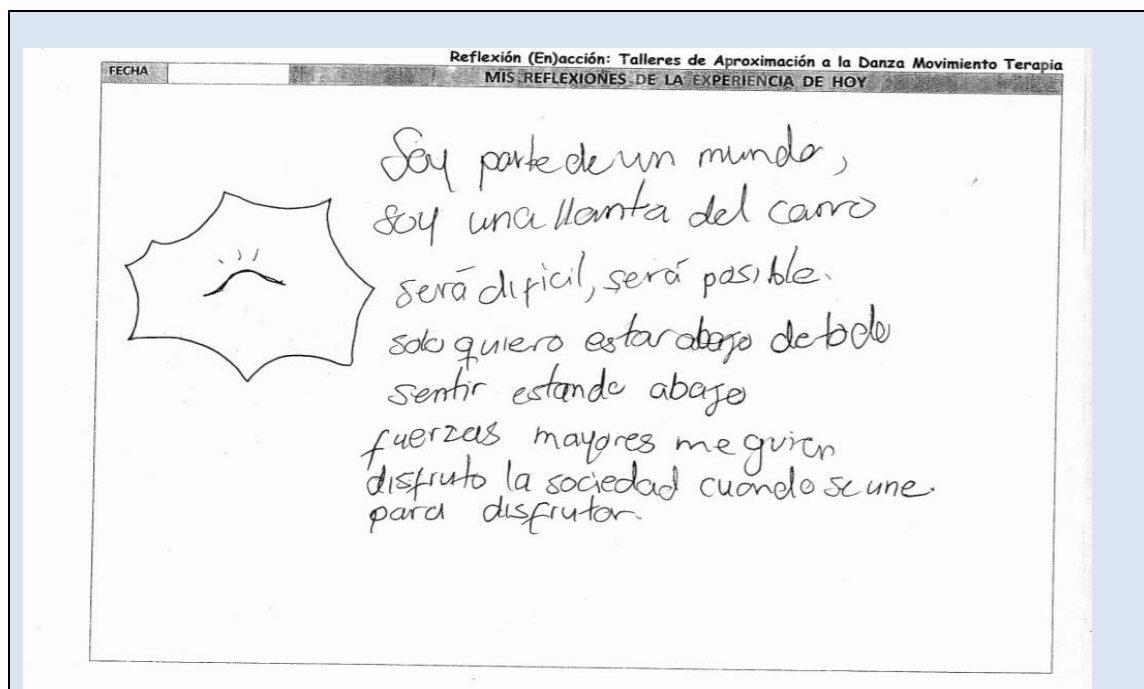 Reflexión (En)acción: Talleres de Aproximación a la Danza Movimiento Terapia
FECHA
MIS REFLEXIONES DE LA EXPERIENCIA DE HOY
Soy parte de un mundo,
soy una llanta del carro
será dificil, será posible.
solo quiero estar abajo de todo
sentir estando abajo
fuerzas mayores me guien
disfruto la sociedad cuando se une.
para disfrutar.